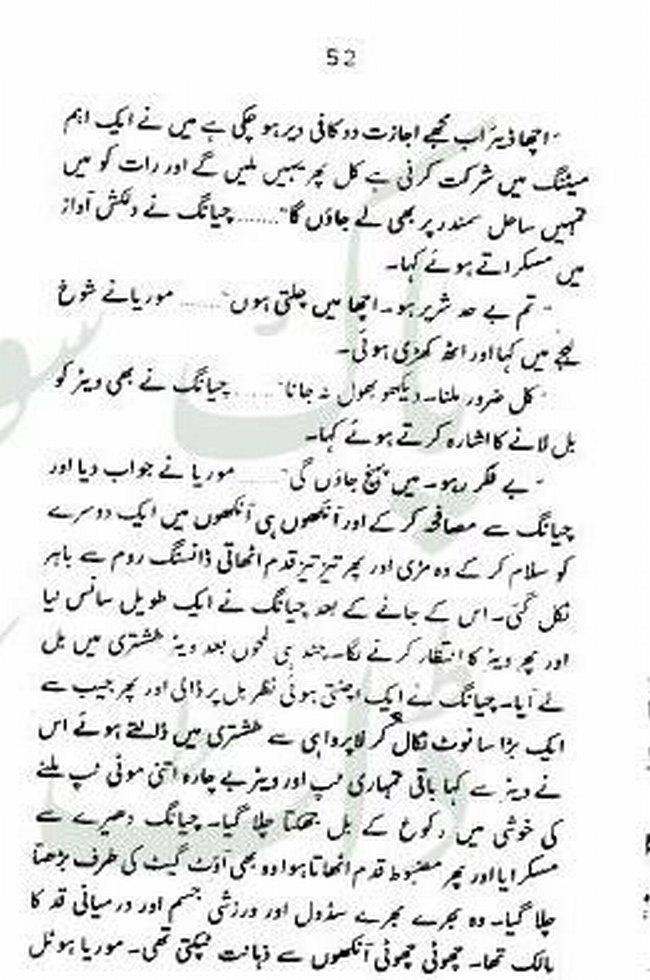 52
"اچھا ڈیئر اب مجھے اجازت دو کافی دیر ہو چکی ہے میں نے ایک اہم
میٹنگ میں شرکت کرنی ہے کل پھر یہیں ملیں گے اور رات کو میں
تمہیں ساحل سمندر پر بھی لے جاؤں گا"........ چیانگ نے دلکش آواز
میں مسکراتے ہوئے کہا۔
"تم بے حد شریر ہو۔ اچھا میں چلتی ہوں"....... موریا نے شوخ
لہجے میں کہا اور اٹھ کھڑی ہوئی۔
"کل ضرور ملنا۔ دیکھو بھول نہ جانا"....... چیانگ نے بھی ویٹر کو
بل لانے کا اشارہ کرتے ہوئے کہا۔
"بے فکر رہو۔ میں پہنچ جاؤں گی"....... موریا نے جواب دیا اور
چیانگ سے مصافحہ کر کے اور آنکھوں ہی آنکھوں میں ایک دوسرے
کو سلام کر کے وہ مڑی اور پھر تیز تیز قدم اٹھاتی ڈانسنگ روم سے باہر
نکل گئی۔ اس کے جانے کے بعد چیانگ نے ایک طویل سانس لیا
اور پھر ویٹر کا انتظار کرنے لگا۔ چند ہی لمحوں بعد ویٹر طشتری میں بل
لے آیا۔ چیانگ نے ایک اچٹتی ہوئی نظر بل پر ڈالی اور پھر جیب سے
ایک بڑا سا نوٹ نکال کر لاپرواہی سے طشتری میں ڈالتے ہوئے اس
نے ویٹر سے کہا باقی تمہاری ٹپ اور ویٹر بے چارہ اتنی موٹی ٹپ ملنے
کی خوشی میں رکوع کے بل جھکتا چلا گیا۔ چیانگ دھیرے سے
مسکرایا اور پھر مضبوط قدم اٹھاتا ہوا وہ بھی آؤٹ گیٹ کی طرف بڑھتا
چلا گیا۔ وہ بھرے بھرے سڈول اور ورزشی جسم اور درمیانی قد کا
مالک تھا۔ چھوٹی چھوٹی آنکھوں سے ذہانت ٹپکتی تھی۔ موریا ہوٹل